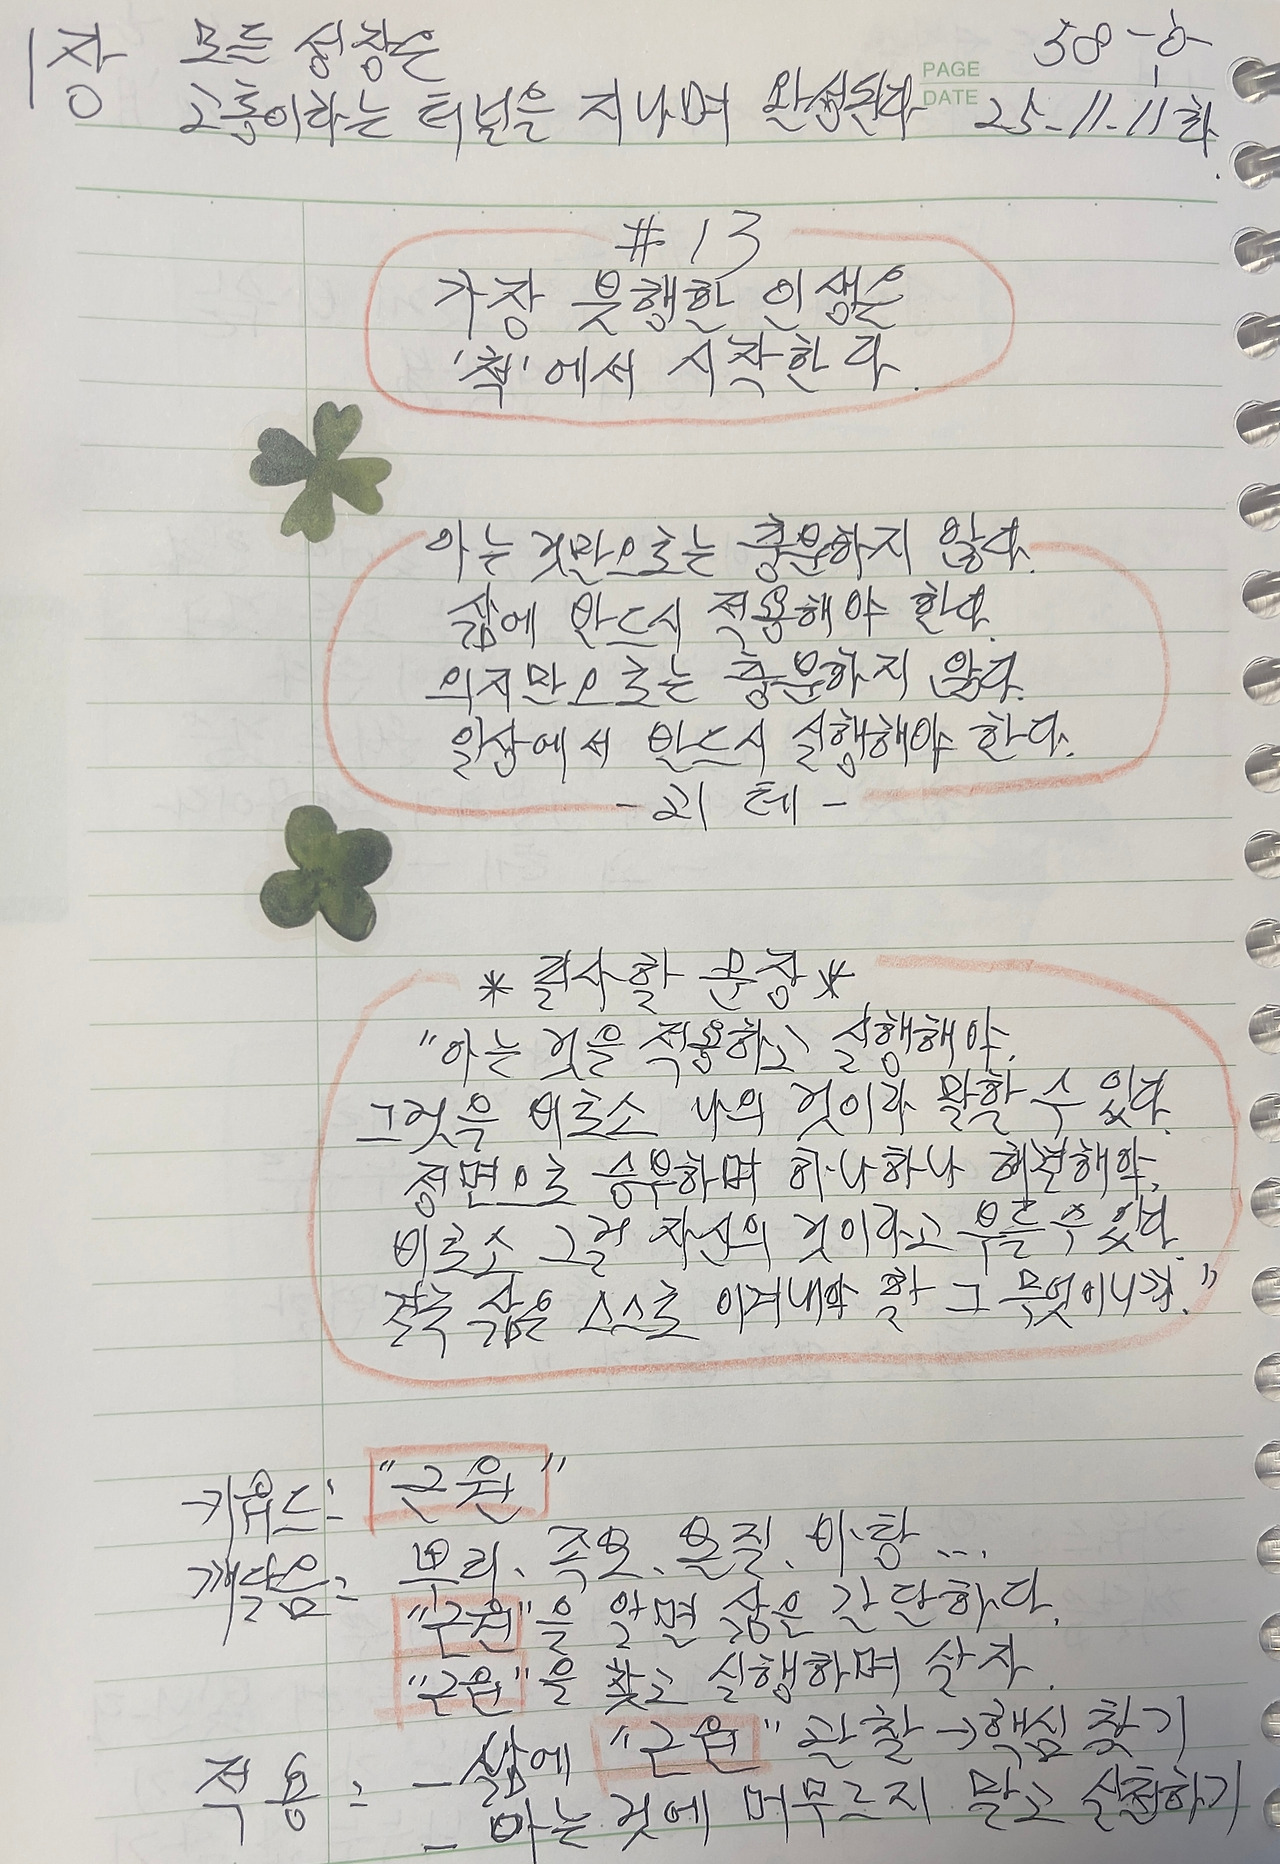 1장 모든 성장은
고통이라는 터널을 지나며 완성된다
PAGE
DATE
58-수
25-11-11 화.
#13
가장 불행한 인생은
'척'에서 시작한다.
아는 것만으로는 충분하지 않다.
삶에 반드시 적용해야 한다.
의지만으로는 충분하지 않다.
일상에서 반드시 실행해야 한다.
-괴테-
*필사할 문장*
"아는 것을 적용하고 실행해야,
그것을 비로소 나의 것이라 말할 수 있다.
정면으로 승부하며 하나하나 해결해야,
비로소 그걸 자신의 것이라고 부를 수 있다.
결국 삶은 스스로 이겨내야 할 그 무엇이니까."
→키워드: "근원"
깨달음: 뿌리, 족보, 본질, 바탕...
"근원"을 알면 삶은 간단하다.
"근원"을 찾고 실행하며 살자.
적용: -삶에 "근원" 관찰→핵심 찾기
- 아는 것에 머무르지 말고 실천하기